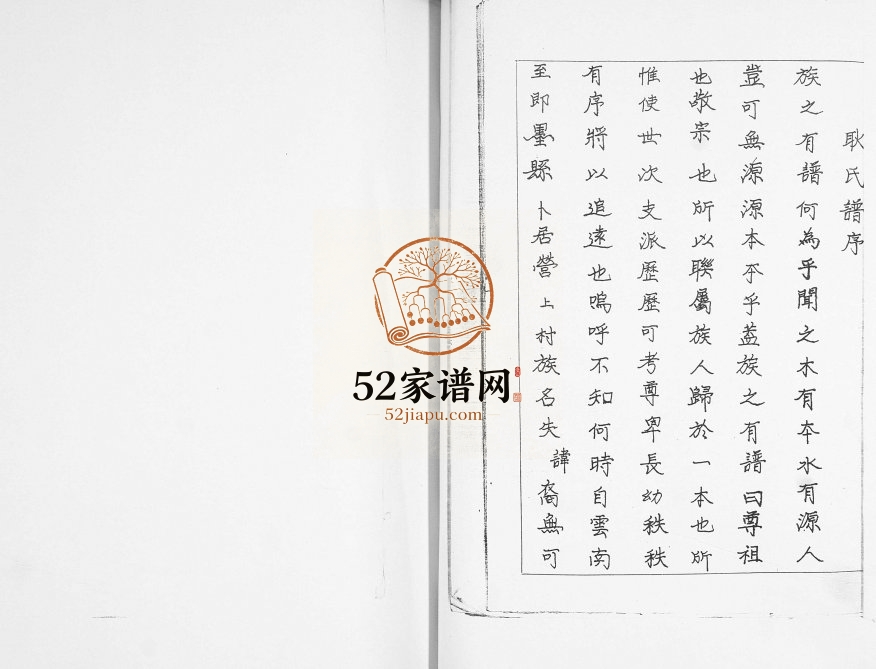 耿氏譜序
族之有譜何為乎聞之木有本水有源人
豈可無源源本本乎盖族之有譜曰尊祖
也敬宗也所以聯屬族人歸於一本也所
惟使世次支派歷歷可考尊卑長幼秩秩
有序將以追遠也嗚呼不知何時自雲南
至即墨縣卜居營上村族名失諱裔無可
52家谱网
52jiapu.com